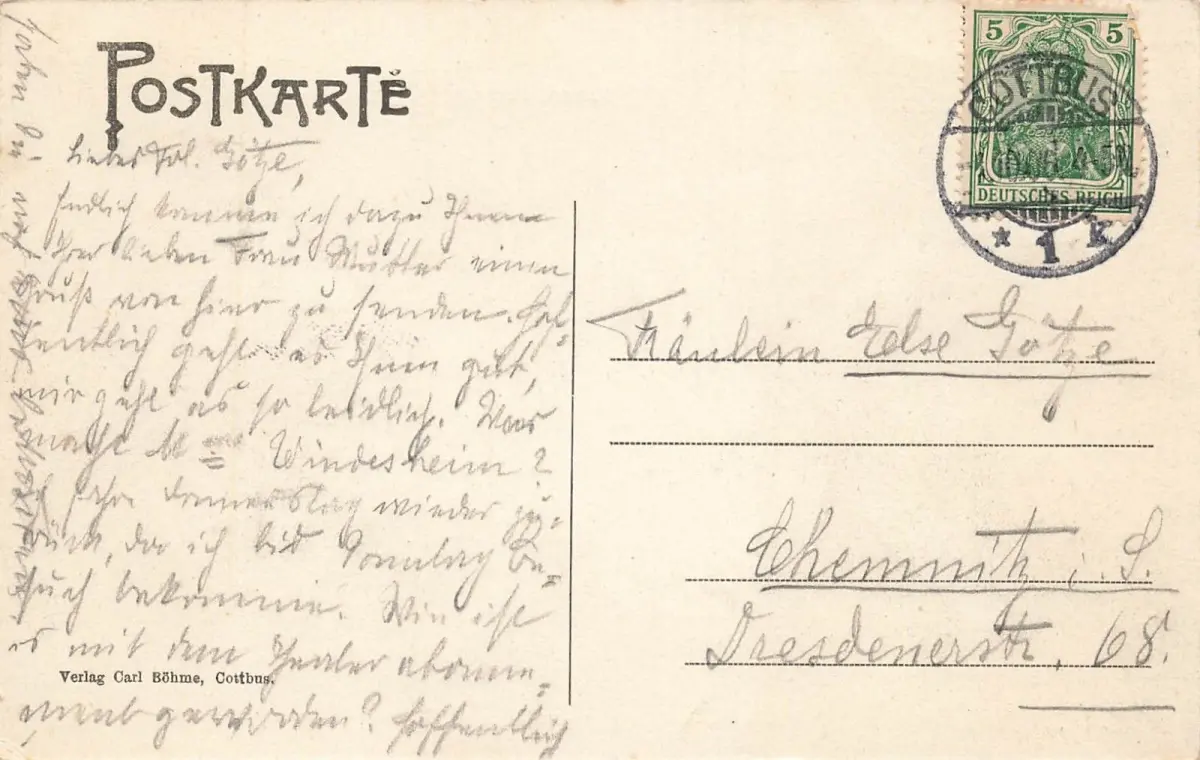 POSTKARTE
Liebes Frl. Götze,
Endlich komme ich dazu Ihnen
Ihrer lieben Frau Mutter einen
Gruß von hier zu senden. Hof-
fentlich geht es Ihnen gut,
mir geht es so leidlich. Was
macht Windesheim?
Ich fahre Donnerstag wieder zu-
rück, da ich bis Sonntag Be-
such bekomme. Wie ist
es mit dem Theater abonne-
ment geworden? Hoffentlich
Verlag Carl Böhme, Cottbus.
5 5
DEUTSCHES REICH
COTTBUS
* 1 k
Fräulein Else Götze
Chemnitz i. S.
Dresdenerstr. 68.